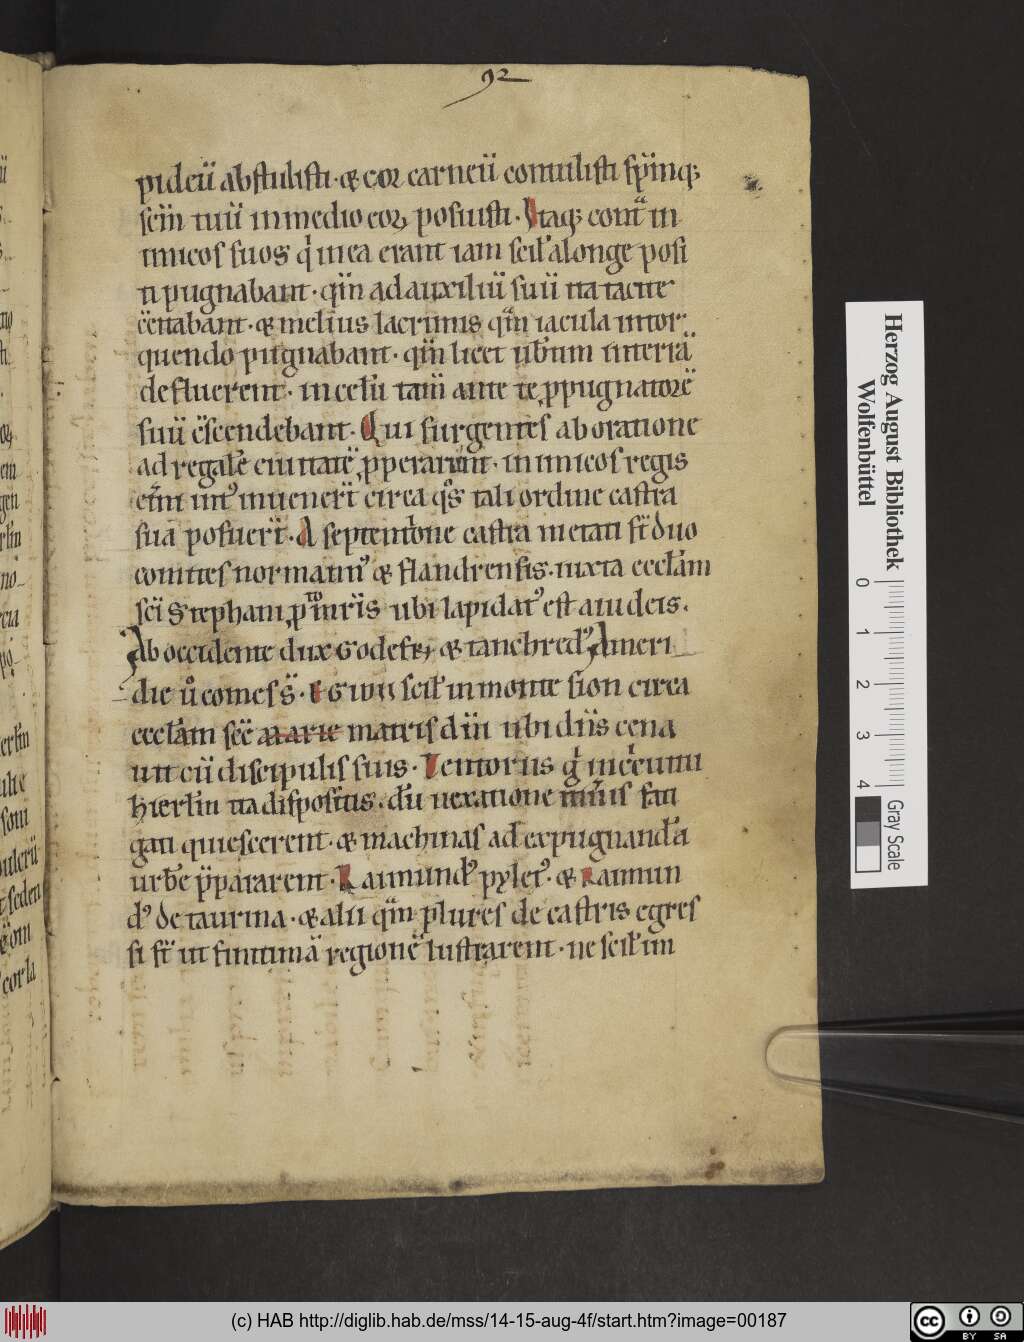 92
pideū abstulisti · & cor carneū contulisti sp̄inq;
scīn tuū in medio eoꝝ posuisti · Itaq; cont̄ in
imicos suos q̇ in ea erant iam scil᷒ a longe posi
ti pugnabant · qm̄ ad auxiliū suū ita tacite
c̄enabant · & melius lacrimis qm̄ iacula intor
quendo pugnabant · qm̄ licet ub̄tim in terrā
defluerent · in celū tam̄ ante te ꝓpugnatorē
suū c̄scendebant · Qui surgentes ab oratione
ad regalē ciuitatē ꝓperarunt · inimicos regis
et̄ni int᷒ inuenerī circa q̊s tali ordine castra
sua posuerī · A septemt̓one castra metati st̄ duo
comites normann᷒ & flandrensis · iuxta eccl̄am
sc̄i Stephani ꝓtom̄ris ubi lapidat᷒ est a iudeis ·
Ab occidente dux Godefr; & tanchred᷒ A meri
die ů comes s̄ · EGidii scil᷒ in monte sion circa
eccl̄am sc̄e marie matris dn̄i ubi dn̄s cena
uit cū discipulis suis · Tentoriis q̇ in c̓cuitu
hierl̄m ita dispositis · dū uexatione itin̄is fati
gati quiescerent · & machinas ad expugnandā
urbē p̄pararent · Raimund᷒ pylet᷒ · & Raimun
d᷒ de taurina · & alii qm̄ plures de castris egres
si st̄ ut finitimā regionē lustrarent · ne scil᷒ im
Herzog August Bibliothek
Wolfenbüttel
0 1 2 3 4
Gray Scale
(c) HAB http://diglib.hab.de/mss/14-15-aug-4f/start.htm?image=00187
cc BY SA